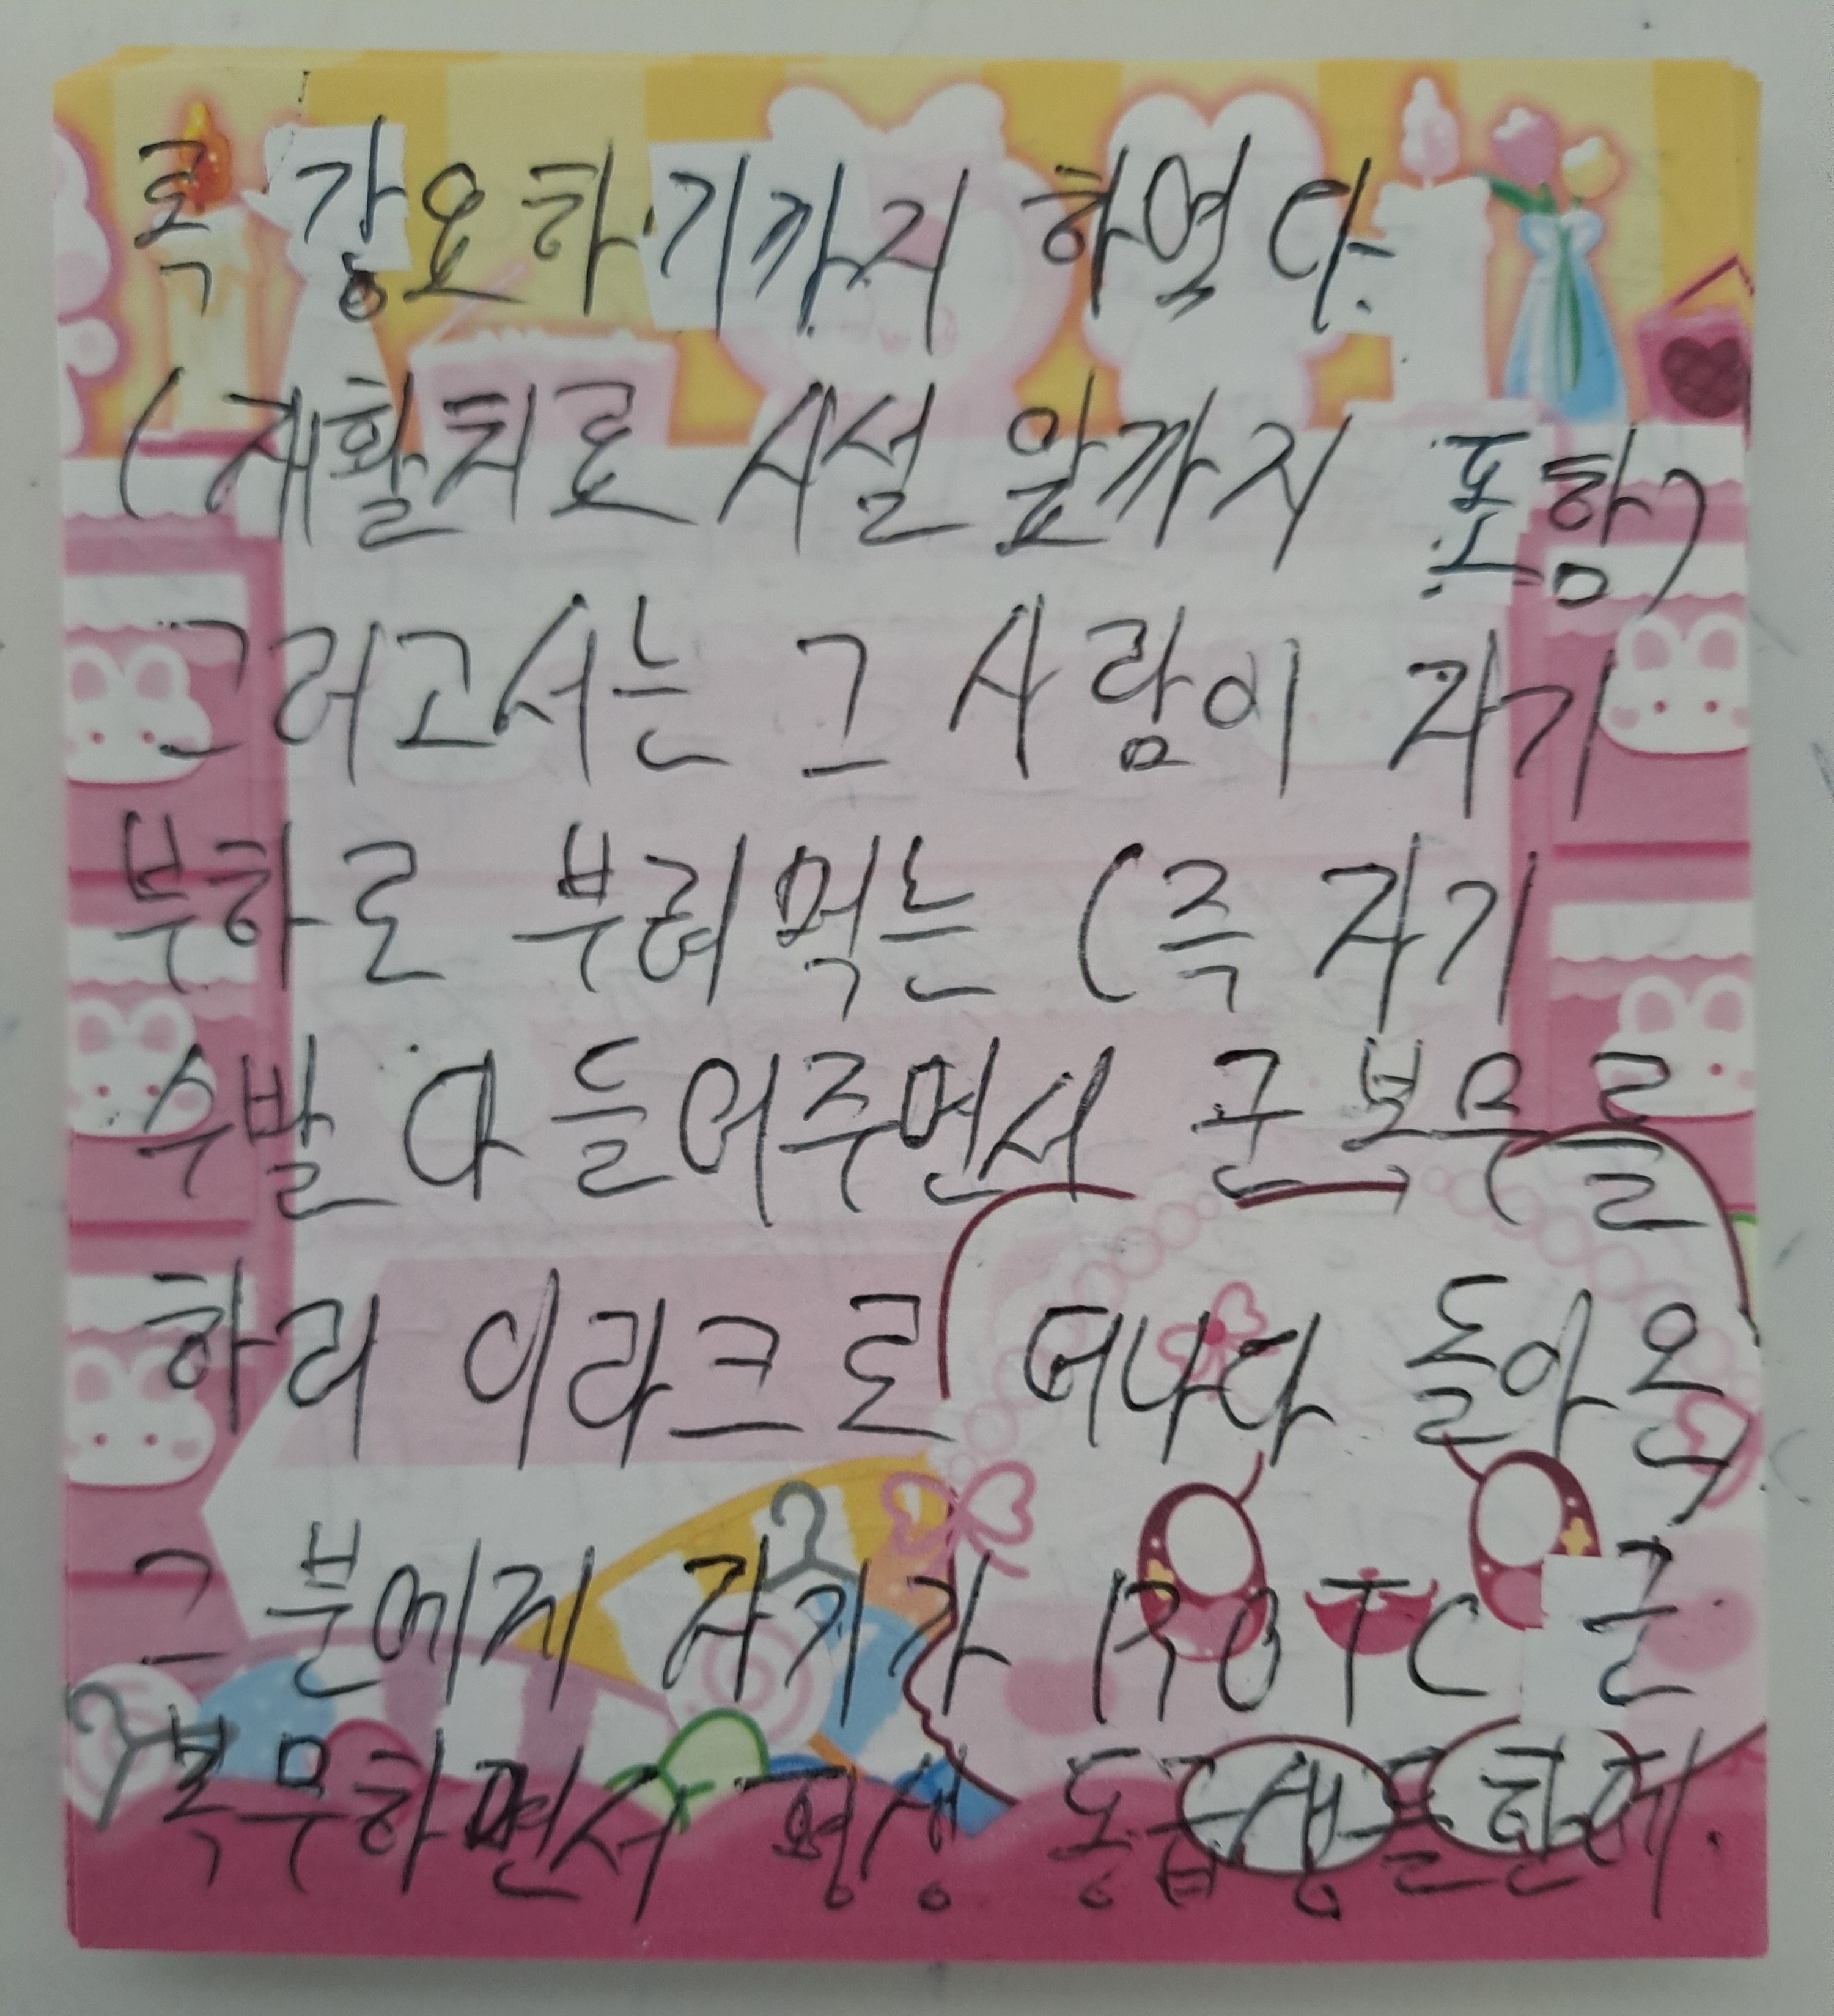 록 강요하기까지 하였다.
(재활치료 시설 앞까지 포함)
그러고서는 그 사람이 자기
부하로 부려먹는 (즉 자기
수발 다 들어주면서 군 복무를
하러 이라크로 떠나다 돌아온
그 분에게 자기가 ROTC 군
복무하면서 평생 동급생들한테